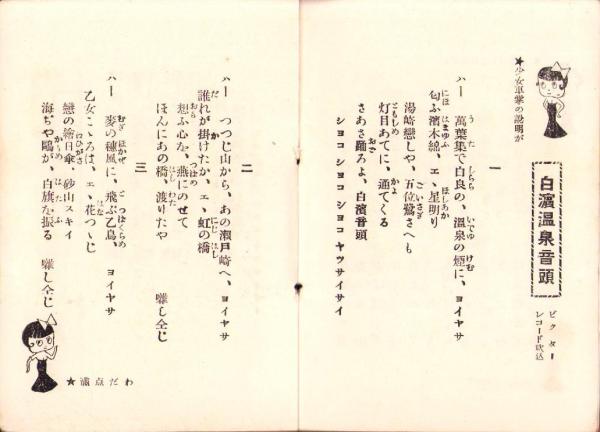 ★少女車掌の説明が
白濱温泉音頭
ビクター
レコード吹込
一
ハー 萬葉集で白良の、温泉の煙に、ヨイヤサ
匂ふ濱木綿、エヽ星明り
湯崎戀しや、五位鷺さへも
灯目あてに、通てくる
さあさ踊ろよ、白濱音頭
ショコ ショコ ショコ ヤッサイサイ
二
ハー つつじ山から、あの瀬戸崎へ、ヨイヤサ
誰れが掛けたか、エヽ虹の橋
想ふ心を、燕にのせて
ほんにあの橋、渡りたや
囃し仝じ
三
ハー 麥の穗風に、飛ぶ乙鳥、ヨイヤサ
乙女こゝろは、エヽ花つゝじ
戀の繪日傘、砂山スキイ
海ぢや鷗が、白旗を振る
囃し仝じ
★満点だわ